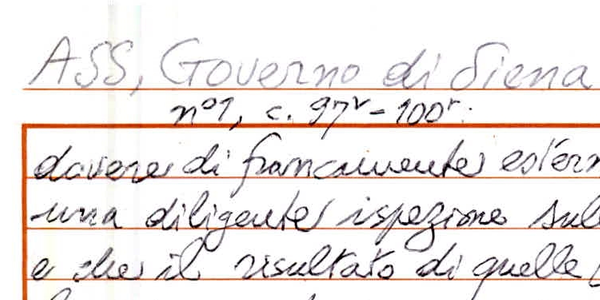 ASS, Governo di Siena
n°1, c. 97v - 100r.
dovere di francamente estern
una diligente ispezione sul
e che il risultato di quelle